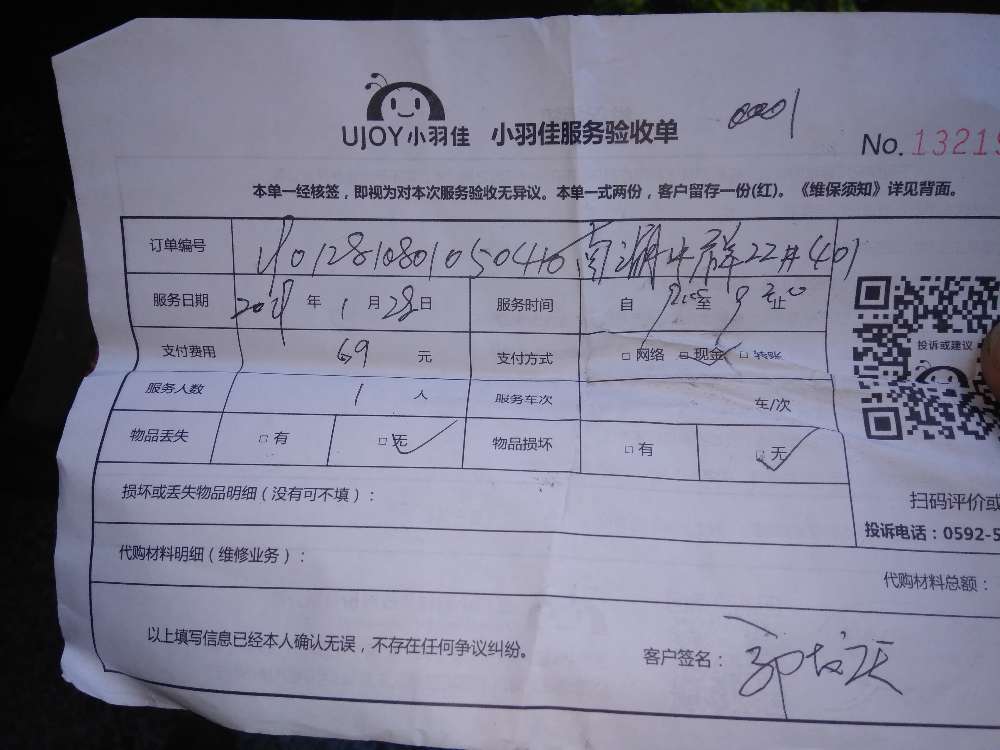 UJOY小羽佳 小羽佳服务验收单
0001
No. 13219
本单一经核签，即视为对本次服务验收无异议。本单一式两份，客户留存一份(红)。《维保须知》详见背面。
订单编号 22#401
服务日期 年 1 月 28 日 服务时间 自 至 9 止
支付费用 69 元 支付方式 □ 网络 □ 现金 □ 转账
服务人数 1 人 服务车次 车/次
物品丢失 □ 有 □ 无 物品损坏 □ 有 □ 无
投诉或建议
损坏或丢失物品明细（没有可不填）：
扫码评价或
投诉电话：0592-5
代购材料明细（维修业务）：
代购材料总额：
以上填写信息已经本人确认无误，不存在任何争议纠纷。
客户签名：